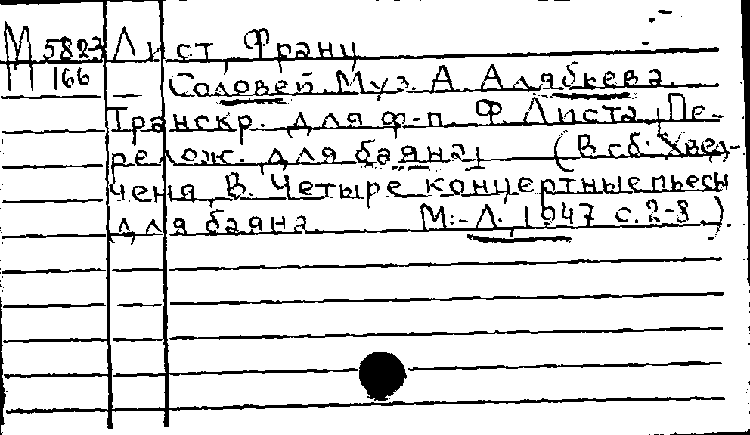 М 5823 Лист, Франц
166 — Соловей. Муз. А. Алябьева.
Транскр. для ф-п. Ф. Листа, Пе-
релож. для баяна. (В сб: Хвед-
ченя, В. Четыре концертные пьесы
для баяна. М.-Л., 1947 с. 2-8.)